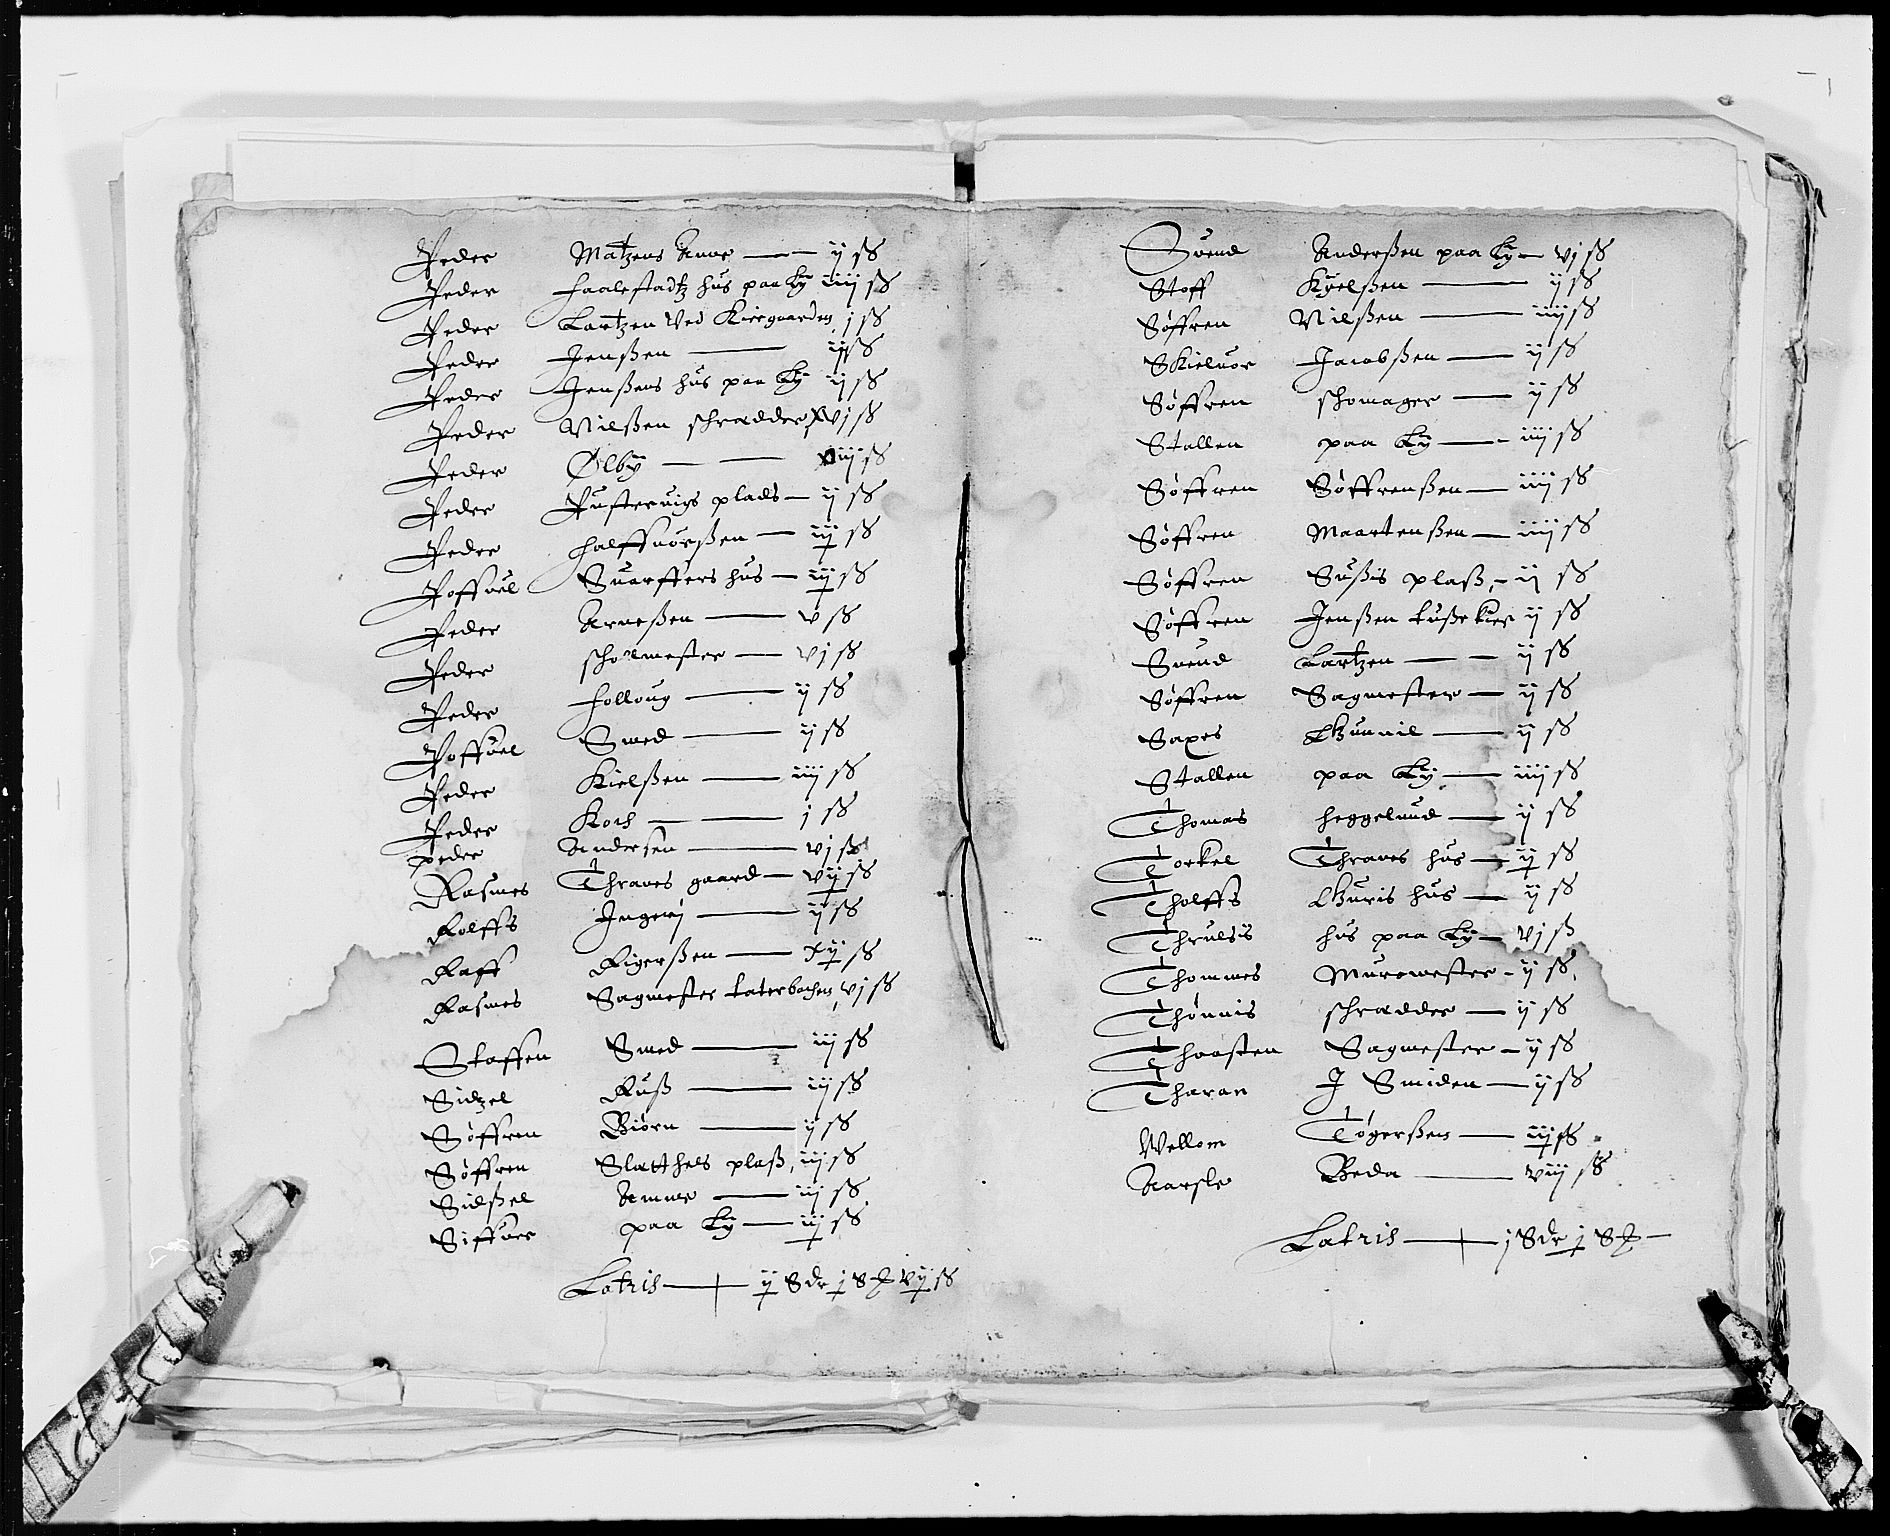 Peder Matzens Anne — ij ß
Peder Faalestadtz hus paa By iiij ß
Peder Lartzen Ved Kircgaarden, j ß
Peder Jenßen — ij ß
Peder Jenßens hus paa By ij ß
Peder Nilßen schradder vj ß
Peder Ølby — iiij ß
Peder Pusteruigs plads — ij ß
Peder Halffuorßen — iij ß
Poffuel Suarffters hus — iij ß
Peder Arneßen — v ß
Peder scholmester — vj ß
Peder Folloug — ij ß
Poffuel Smed — ij ß
Peder Kielßen — iiij ß
Peder Koch — j ß
peder Andersen — vj ß
Rasmes Thranes gaard — vij ß
Rolffs Ingerj — ij ß
Raff Rigerßen — xij ß
Rasmes Sagmester Laterbachen, vj ß
Staffen Smed — iij ß
Sidzel Ruß — iij ß
Søffren Biørn — ij ß
Søffren Slatthels plaß, iij ß
Sidßel Amme — iij ß
Siffuer paa By — iij ß
Latris — ij Sdr j S vij ß
Suend Anderßen paa By — vj ß
Stoff Kyelßen — ij ß
Søffren Nilßen — iiij ß
Skieluor Jacobßen — ij ß
Søffren schomager — ij ß
Stallen paa By — iiij ß
Søffren Søffrenßen — iiij ß
Søffren Maartenßen — iiij ß
Søffren Sußis plaß, — ij ß
Søffren Jenßen Lußekier ij ß
Suend Lartzen — ij ß
Søffren Sagmester — ij ß
Saxes — ij ß
Stallen paa By — iiij ß
Thomas heggelund — ij ß
Torkel Thranes hus — ij ß
Tholffs hus — ij ß
Thrulsis hus paa By — vj ß
Thommes Muremester — ij ß
Thønnis schradder — ij ß
Thoosten Sagmester — ij ß
Tharan J Smiden — ij ß
Wellom Tøgerßen — iij ß
Aarsle Beda — viij ß
Latris — j Sdr j S —